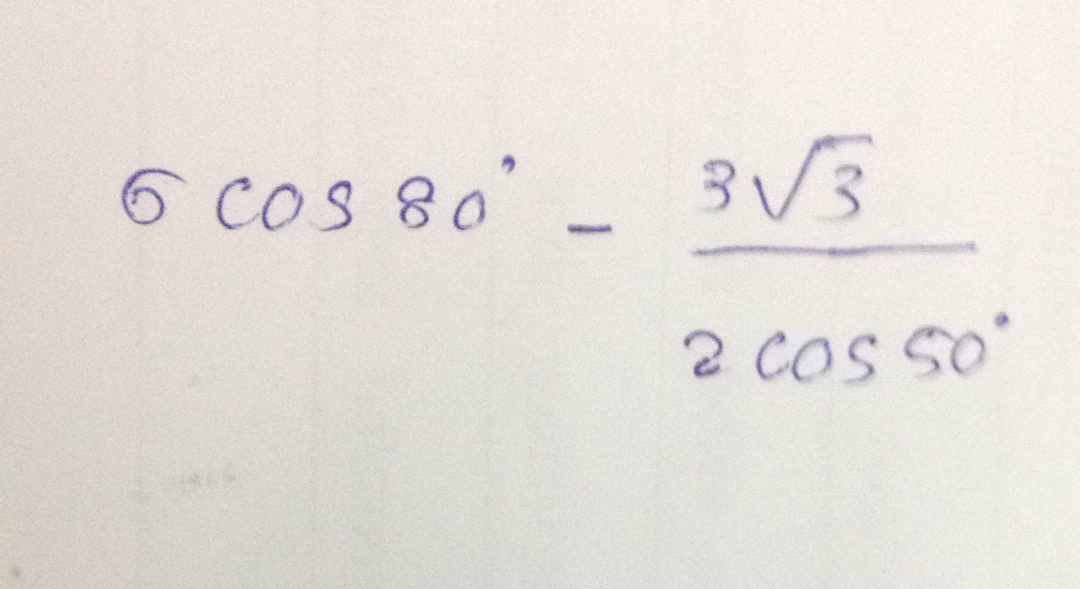 6 cos 80° - 3√3 / 2 cos 50°